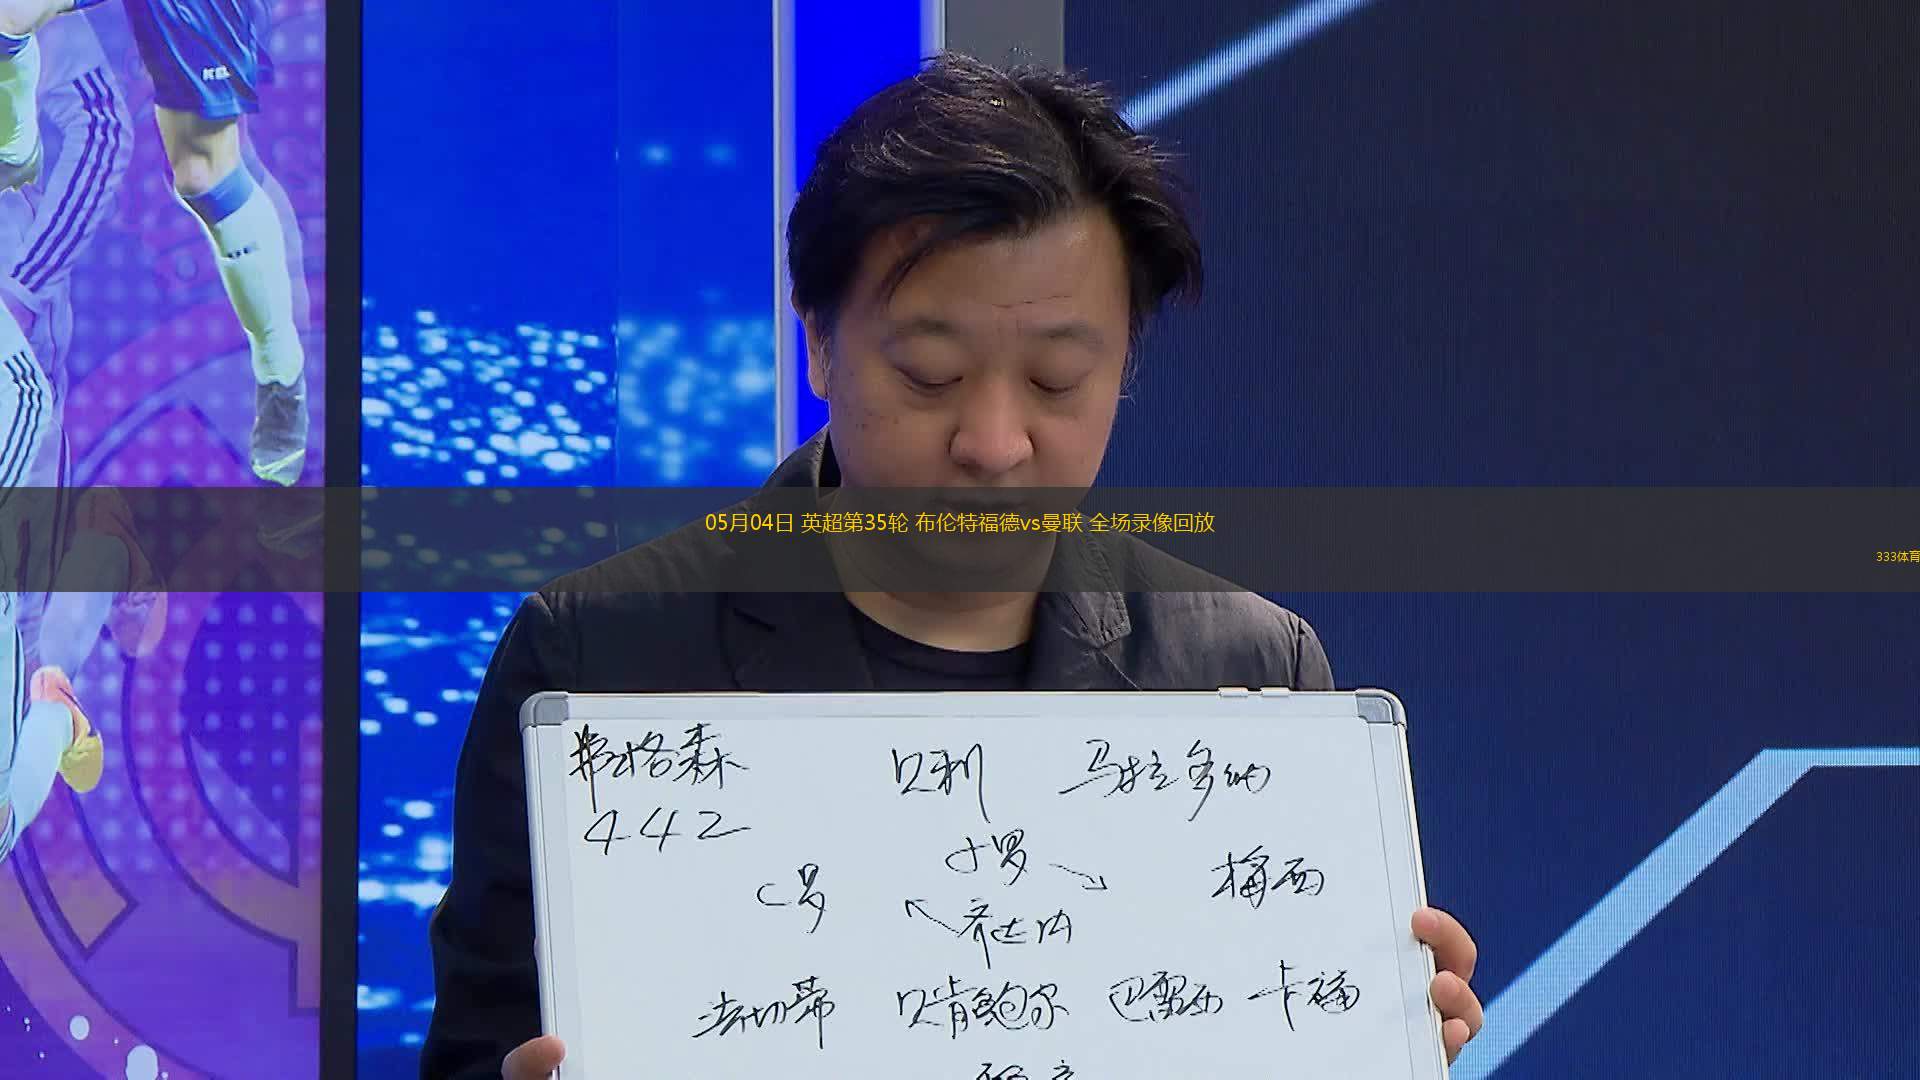 05月04日 英超第35轮 布伦特福德vs曼联 全场录像回放
333体育
弗格森 贝利 马拉多纳
442
小罗
C罗 梅西
齐达内
法切蒂 贝肯鲍尔 巴雷西 卡福